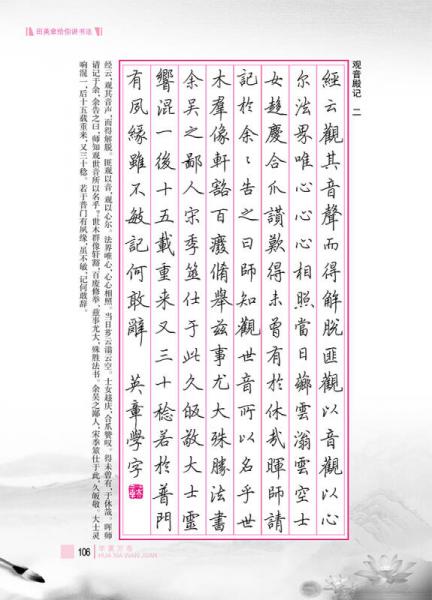 田英章给你讲书法
观音殿记 二
經云觀其音聲而得解脱匪觀以音觀以心
尔法界唯心心心相照當日薌雲滃雲空士
女趍慶合爪讚歎得未曾有於休哉暉師請
記於余〻告之曰師知觀世音所以名乎世
木羣像軒豁百癈脩舉兹事尤大殊勝法書
余吴之鄙人宋季筮仕于此久皈敬大士靈
響混一後十五載重来又三十稔若於普門
有夙緣雖不敏記何敢辭 英章學字
经云，观其音声，而得解脱。匪观以音，观以心尔。法界唯心，心心相照。当日芗云滃云空。士女趍庆，合爪赞叹。得未曾有，于休哉。晖师
请记于余，余告之曰，师知观世音所以名乎？世木群像轩豁，百废修举，兹事尤大，殊胜法书。余吴之鄙人，宋季筮仕于此，久皈敬。大士灵
响混一，后十五载重来，又三十稔。若于普门有夙缘，虽不敏，记何敢辞。
106
华夏万卷
HUA XIA WAN JUAN